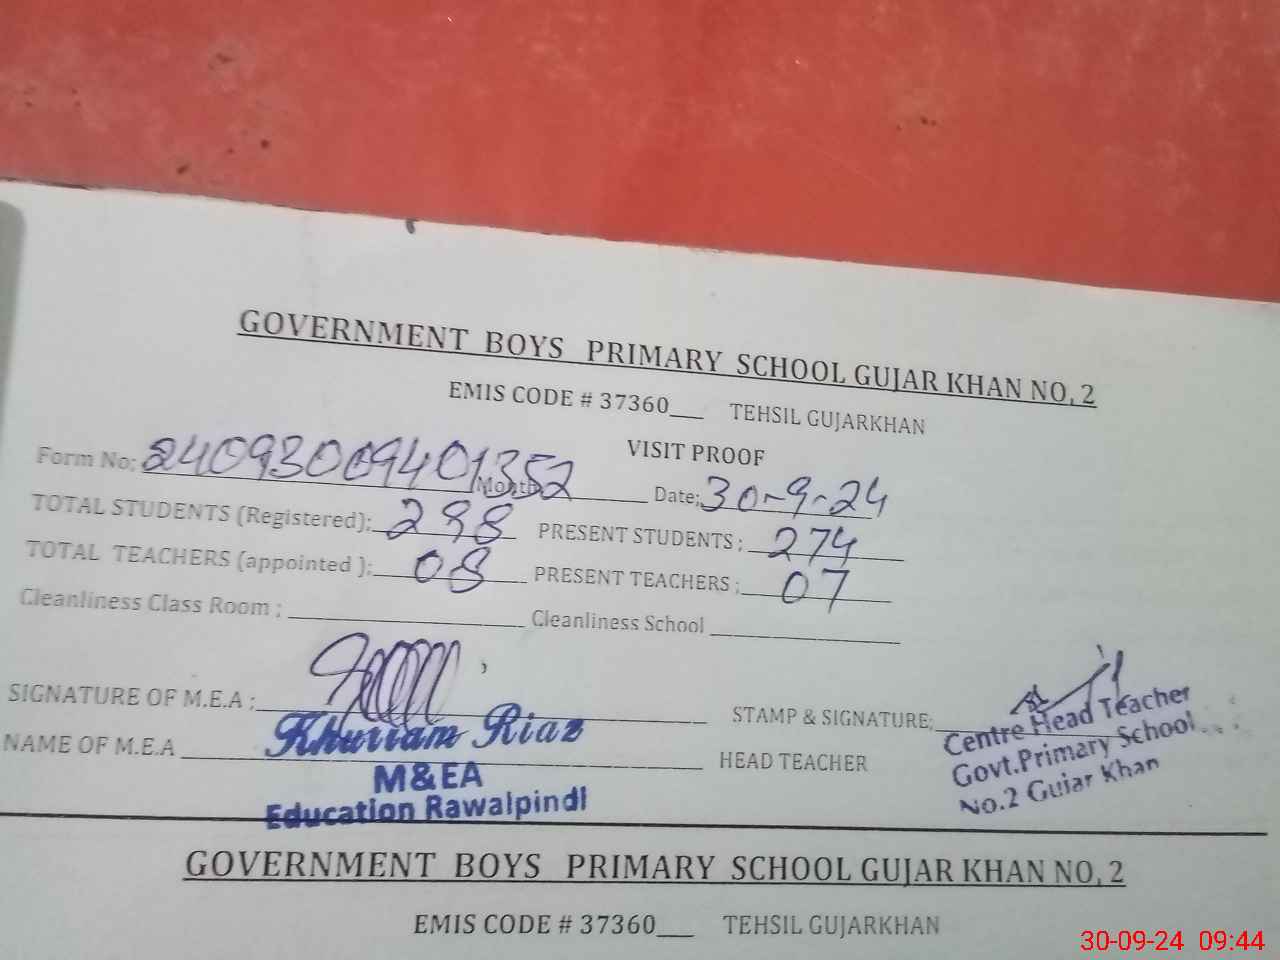 GOVERNMENT BOYS PRIMARY SCHOOL GUJAR KHAN NO, 2
EMIS CODE # 37360___ TEHSIL GUJARKHAN
VISIT PROOF
Form No; 24093009401352 Month Date; 30-9-24
TOTAL STUDENTS (Registered); 298 PRESENT STUDENTS ; 274
TOTAL TEACHERS (appointed ); 08 PRESENT TEACHERS ; 07
Cleanliness Class Room ; Cleanliness School
SIGNATURE OF M.E.A ; STAMP & SIGNATURE;
NAME OF M.E.A Khurram Riaz HEAD TEACHER
M&EA
Education Rawalpindi
Centre Head Teacher
Govt.Primary School
No.2 Gujar Khan
GOVERNMENT BOYS PRIMARY SCHOOL GUJAR KHAN NO, 2
EMIS CODE # 37360___ TEHSIL GUJARKHAN
30-09-24 09:44